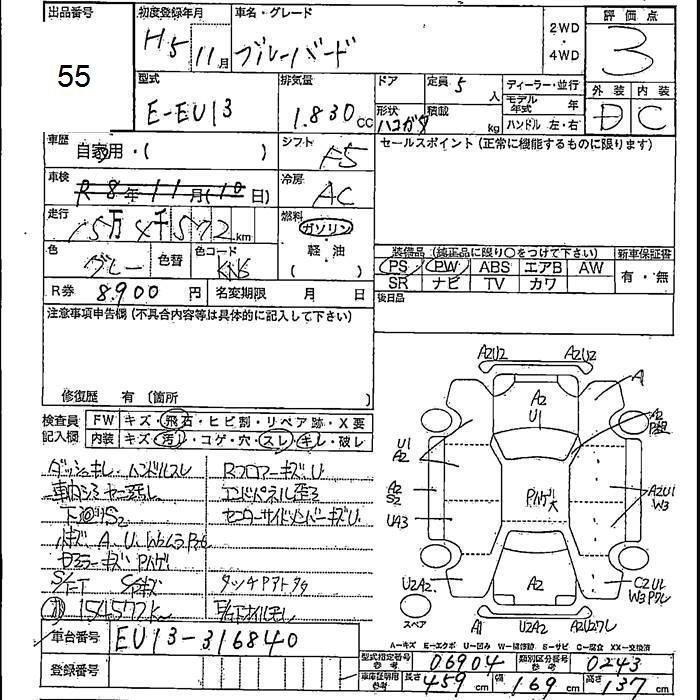 出品番号
55
初度登録年月
H5 11月
車名・グレード
ブルーバード
2WD
・
4WD
評価点
3
型式
E-EU13
排気量
1.830cc
ドア
形状
ハコガタ
定員 5人
積載 kg
ディーラー・並行
モデル年式 年
ハンドル 左・右
外装 内装
D C
車歴
自家用・( )
シフト
F5
セールスポイント(正常に機能するものに限ります)
車検
R8年11月(10日)
冷房
AC
走行
15万4千572km
燃料
ガソリン
軽油
( )
色
グレー
色替
色コード
KN6
装備品 (純正品に限り○をつけて下さい)
新車保証書
PS PW ABS エアB AW
有・無
SR ナビ TV カワ
R券 8,900円
名変期限 月 日
後日品
注意事項申告欄(不具合内容等は具体的に記入して下さい)
修復歴 有(箇所 )
検査員
記入欄
FW キズ・飛石・ヒビ割・リペア跡・X要
内装 キズ・汚れ・コゲ・穴・スレ・キレ・破レ
ダッシュキレ・ハンドルスレ
RフロアーキズU
エンドパネル歪
下回りS2
センターサイドメンバーキズU
タッチPアトタタ
154577k
車台番号
EU13-316840
登録番号
A2U2
A2U2
A1
A2
U1
A2
U1
A2
A2
S2
UA3
Pハゲ大
A2U1
W3
U2A2
A2
C2U1
W3
スペア
A1
U2A2
A=キズ E=エクボ U=凹み W=補修跡 S=サビ C=腐食 XX=交換済
型式指定番号
参考
06904
類別区分番号
参考
0243
車庫証明用
参考
長さ 459cm
幅 169cm
高さ 137cm